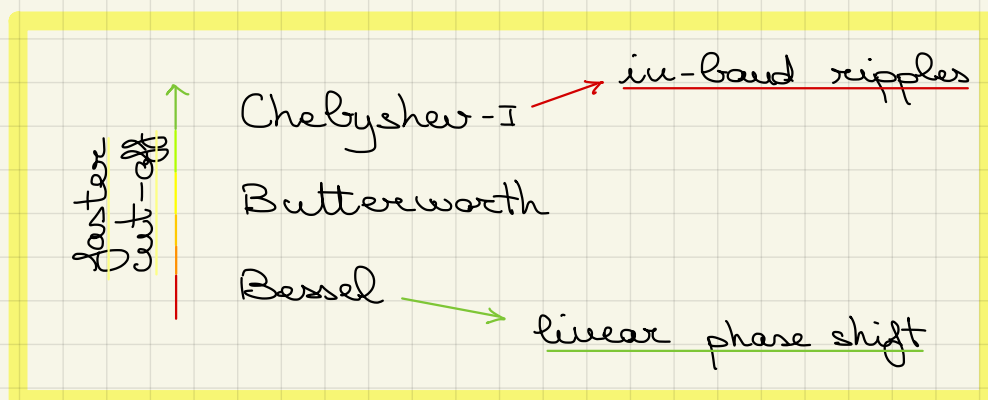 faster
cut-off
Chebyshev-I
in-band ripples
Butterworth
Bessel
linear phase shift